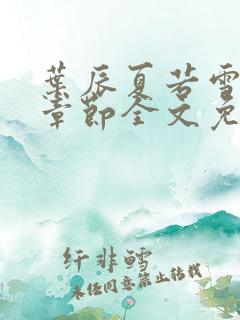 葉辰夏若雪
章節全文免
纤非鳕
未经同意禁止转载